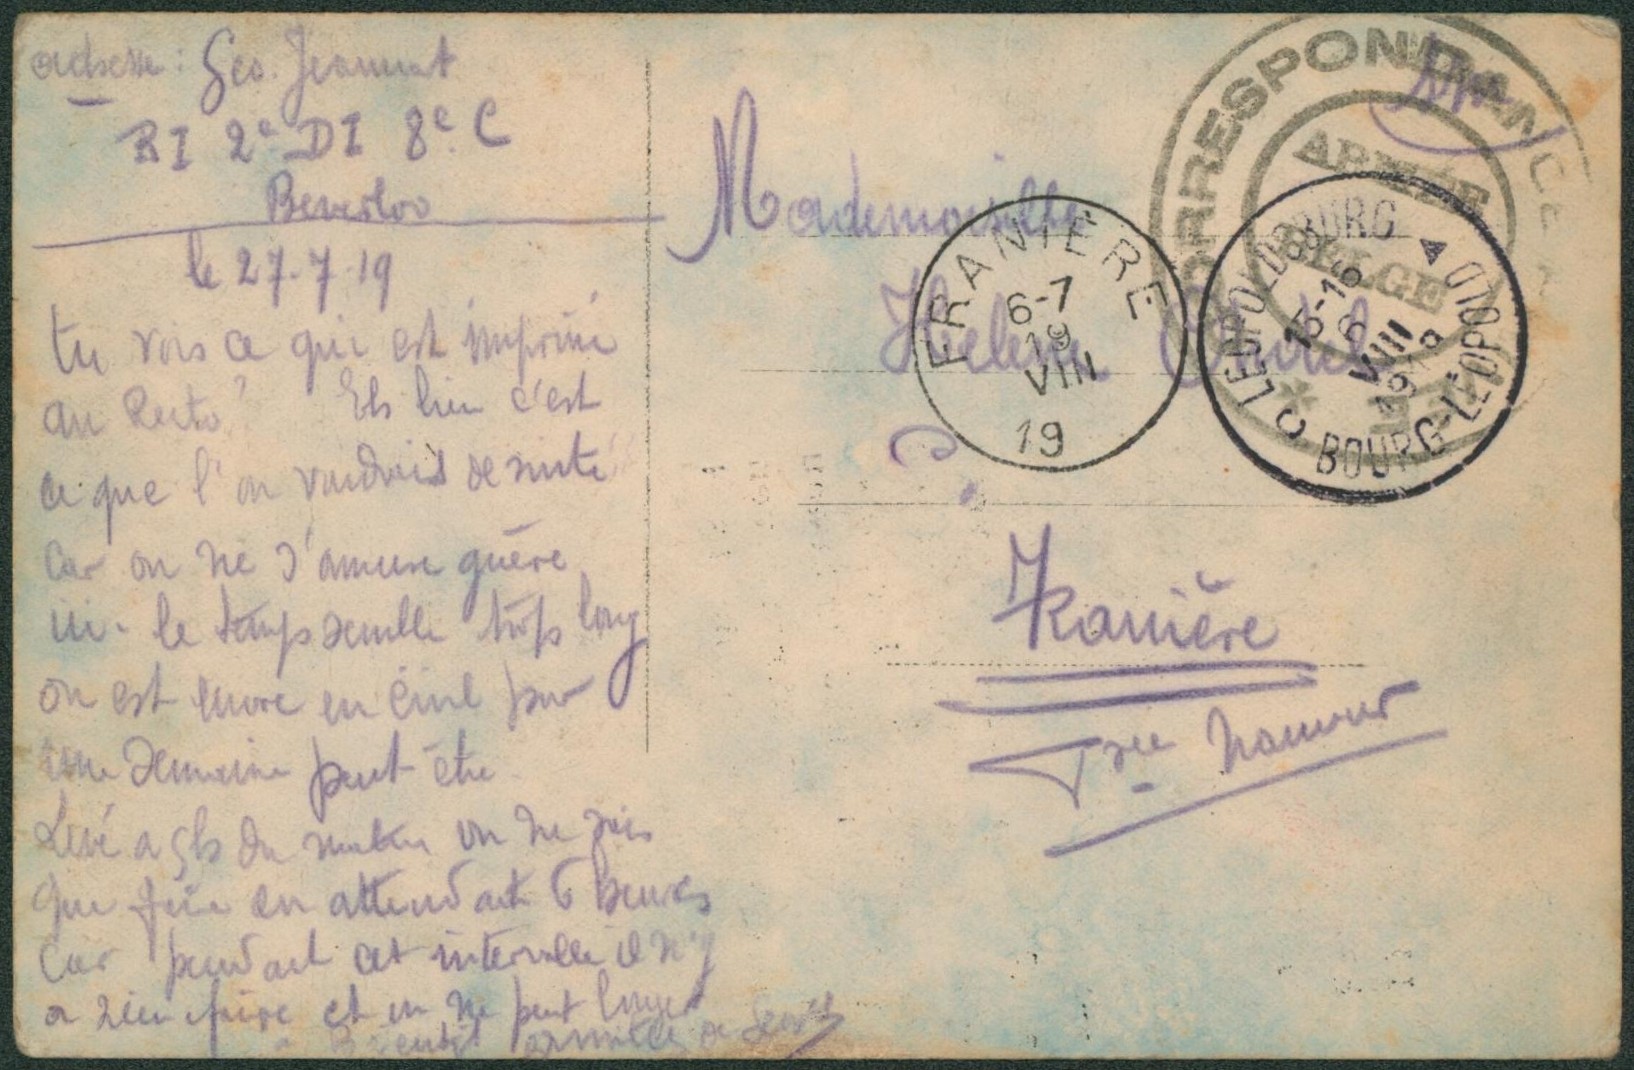 adresse : Geo. Jeannot
RI 2e DI 8e C
Beverloo
le 27-7-19
tu vois ce qui est imprimé
au Recto? Eh bien c'est
ce que l'on voudrait de suite
car on ne s'amuse guère
ici - le temps semble trop long
on est encore en civil pour
une semaine peut-être
Levé a 5h du matin on ne sais
que faire en attendant 6 heures
Car pendant cet intervalle il n'y
a rien faire et on ne peut
Mademoiselle
Helene
Franière
Pce Namour
CORRESPONDANCE
ARMÉE
BELGE
FRANIERE
6-7
19
VIII
19
LEOPOLDSBURG
BOURG-LÉOPOLD
VIII